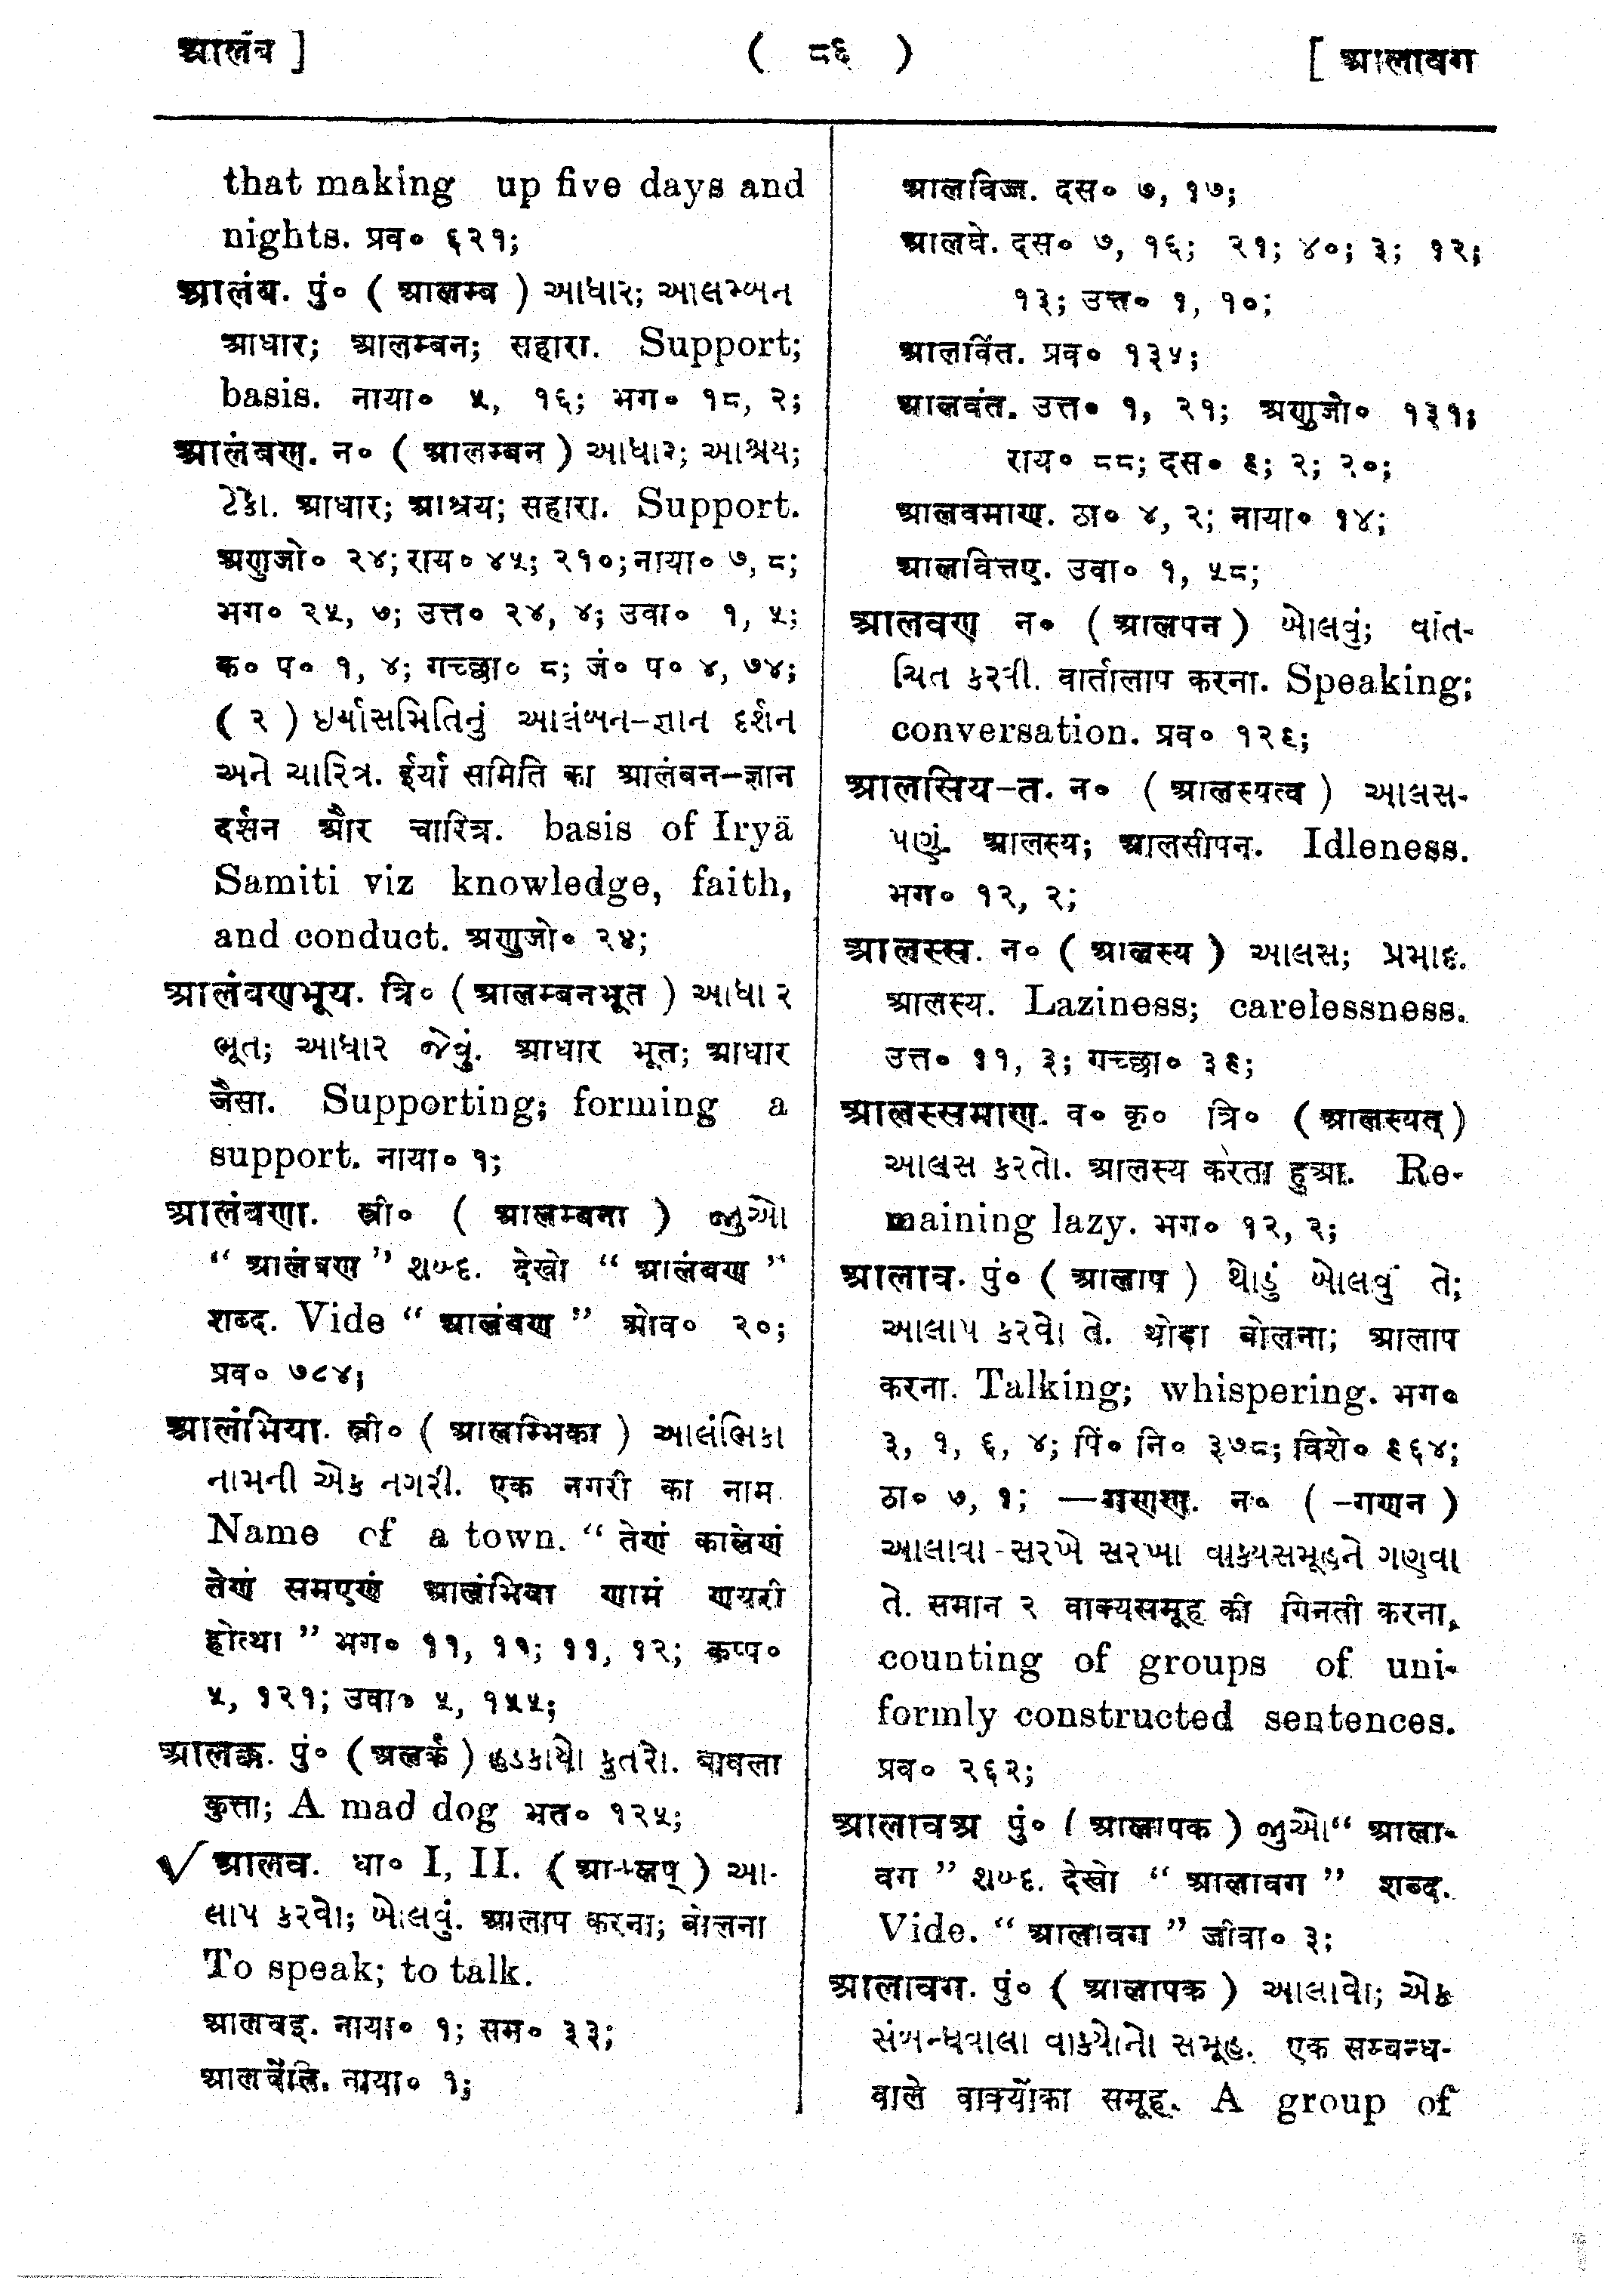 आलंब ]
( ८६ )
[ आलावग
that making up five days and
nights. प्रव० ६२१;
आलंब. पुं० ( आलम्ब ) આધાર; આલમ્બન
आधार; आलम्बन; सहारा. Support;
basis. नाया० ५, १६; भग० १८, २;
आलंबण. न० ( आलम्बन ) આધાર; આશ્રય;
ટેકો. आधार; आश्रय; सहारा. Support.
अणुजो० २४; राय० ४५; २१०; नाया० ७, ८;
भग० २५, ७; उत्त० २४, ४; उवा० १, ५;
क० प० १, ४; गच्छा० ८; जं० प० ४, ७४;
( २ ) ઇર્યાસમિતિનું આલંબન-જ્ઞાન દર્શન
અને ચારિત્ર. ईर्या समिति का आलंबन-ज्ञान
दर्शन और चारित्र. basis of Iryā
Samiti viz knowledge, faith,
and conduct. अणुजो० २४;
आलंबणभूय. त्रि० ( आलम्बनभूत ) આધાર
ભૂત; આધાર જેવું. आधार भूत; आधार
जैसा. Supporting; forming a
support. नाया० १;
आलंबणा. स्त्री० ( आलम्बना ) જુઓ
“ आलंबण ” શબ્દ. देखो “ आलंबण ”
शब्द. Vide “ आलंबण ” ओव० २०;
प्रव० ७८४;
आलंभिया. स्त्री० ( आलम्भिका ) આલંભિકા
નામની એક નગરી. एक नगरी का नाम
Name of a town. “ तेणं कालेणं
तेणं समएणं आलंभिया णामं णयरी
होत्था ” भग० ११, ११; ११, १२; कप्प०
५, १२१; उवा० ५, १५५;
आलक्क. पुं० ( अलर्क ) હડકાયો કુતરો. बावला
कुत्ता; A mad dog भत० १२५;
आलव. धा० I, II. ( आ+लप् ) આ-
લાપ કરવો; બોલવું. आलाप करना; बोलना
To speak; to talk.
आलवइ. नाया० १; सम० ३३;
आलवेंति. नाया० १;
आलविज्ज. दस० ७, १७;
आलवे. दस० ७, १६; २१; ४०; ३; १२;
१३; उत्त० १, १०;
आलविंत. प्रव० १३५;
आलवंत. उत्त० १, २१; अणुजो० १३१;
राय० ८८; दस० ९; २; २०;
आलवमाण. ठा० ४, २; नाया० १४;
आलवित्तए. उवा० १, ५८;
आलवण न० ( आलपन ) બોલવું; વાત-
ચિત કરવી. वार्तालाप करना. Speaking;
conversation. प्रव० १२९;
आलसिय-त. न० ( आलस्यत्व ) આલસ-
પણું. आलस्य; आलसीपन. Idleness.
भग० १२, २;
आलस्स. न० ( आलस्य ) આલસ; પ્રમાદ.
आलस्य. Laziness; carelessness.
उत्त० ११, ३; गच्छा० ३९;
आलस्समाण. व० कृ० त्रि० ( आलस्यत् )
આલસ કરતો. आलस्य करता हुआ. Re-
maining lazy. भग० १२, २;
आलाव. पुं० ( आलाप ) થોડું બોલવું તે;
આલાપ કરવો તે. थोडा बोलना; आलाप
करना. Talking; whispering. भग०
३, १, ६, ४; पिं० नि० ३७८; विशे० ९६४;
ठा० ७, १; —गणण. न० ( -गणन )
આલાવા-સરખે સરખા વાક્યસમૂહને ગણવા
તે. समान २ वाक्यसमूह की गिनती करना.
counting of groups of uni-
formly constructed sentences.
प्रव० २६२;
आलावअ पुं० ( आलापक ) જુઓ “ आला-
वग ” શબ્દ. देखो “ आलावग ” शब्द.
Vide. “ आलावग ” जीवा० ३;
आलावग. पुं० ( आलापक ) આલાવો; એક
સંબન્ધવાલા વાક્યોનો સમૂહ. एक सम्बन्ध-
वाले वाक्योंका समूह. A group of